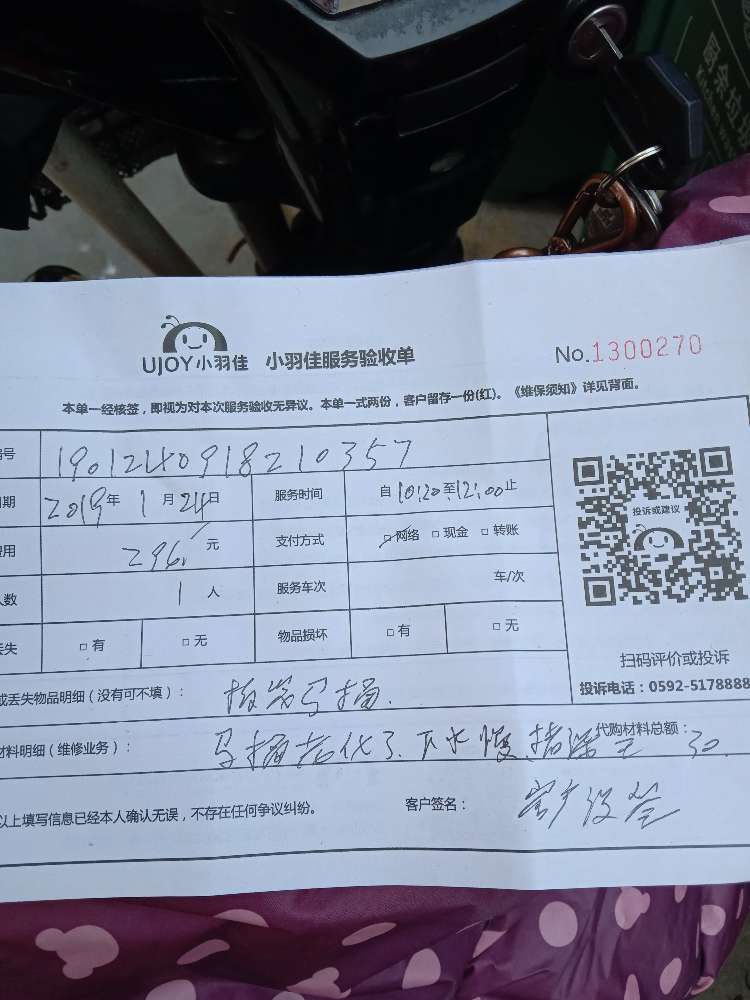 厨余垃
UJOY小羽佳 小羽佳服务验收单
No.1300270
本单一经核签，即视为对本次服务验收无异议。本单一式两份，客户留存一份(红)。《维保须知》详见背面。
号 1901240918210357
期 2019年 1月 24日 服务时间 自 10:20 至 12:00 止
用 296. 元 支付方式 □网络 □现金 □转账
人数 1 人 服务车次 车/次
丢失 □有 □无 物品损坏 □有 □无
投诉或建议
扫码评价或投诉
投诉电话：0592-5178888
或丢失物品明细（没有可不填）： 马桶.
材料明细（维修业务）： 马桶老化了.下水慢 代购材料总额： 30
以上填写信息已经本人确认无误，不存在任何争议纠纷。 客户签名：